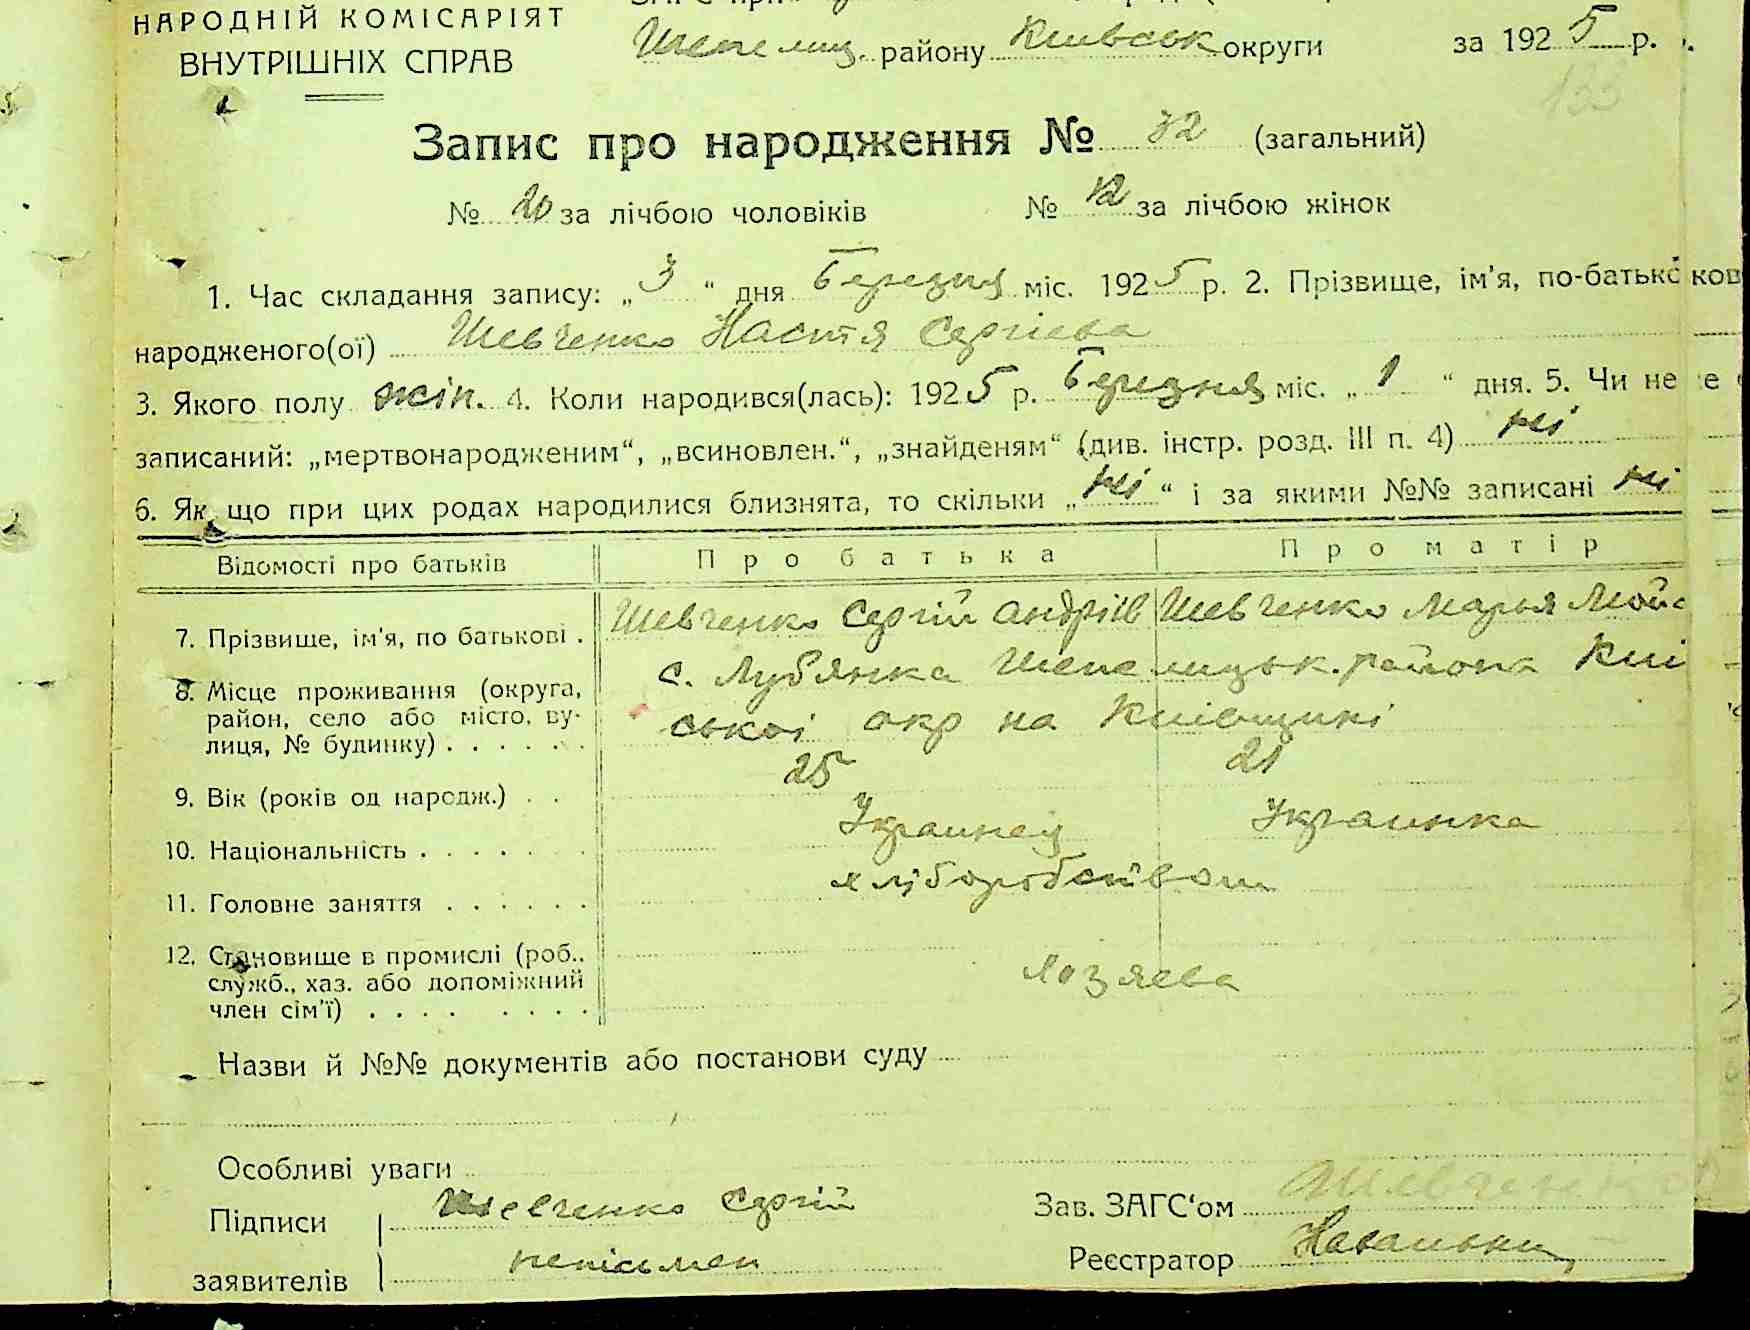 НАРОДНІЙ КОМІСАРІЯТ
ВНУТРІШНІХ СПРАВ
Шепелиц. району Київськ округи за 1925 р.
133
Запис про народження № 32 (загальний)
№ 20 за лічбою чоловіків № 12 за лічбою жінок
1. Час складання запису: „3“ дня Березня міс. 1925 р. 2. Прізвище, ім'я, по-батькові
народженого(ої) Шевченко Настя Сергієва
3. Якого полу жін. 4. Коли народився(лась): 1925 р. Березня міс. „1“ дня. 5. Чи не
записаний: „мертвонародженим“, „всиновлен.“, „знайденям“ (див. інстр. розд. III п. 4) ні
6. Як що при цих родах народилися близнята, то скільки „ні“ і за якими №№ записані ні
Відомості про батьків Про батька Про матір
7. Прізвище, ім'я, по батькові . Шевченко Сергій Андріїв Шевченко Марья Мой
8. Місце проживання (округа, с. Лубянка Шепелицьк. района Киї
район, село або місто, ву-
лиця, № будинку) . . . . . . ської окр на Київщині
9. Вік (років од народж.) . . 25 21
10. Національність . . . . . . Украинец Украинка
11. Головне заняття . . . . . . хліборобством
12. Становище в промислі (роб.,
служб., хаз. або допоміжний Хозяева
член сім'ї) . . . . . . . .
Назви й №№ документів або постанови суду
Особливі уваги
Підписи Шевченко Сергій Зав. ЗАГС'ом Шевченко
заявителів непісьмен Реєстратор